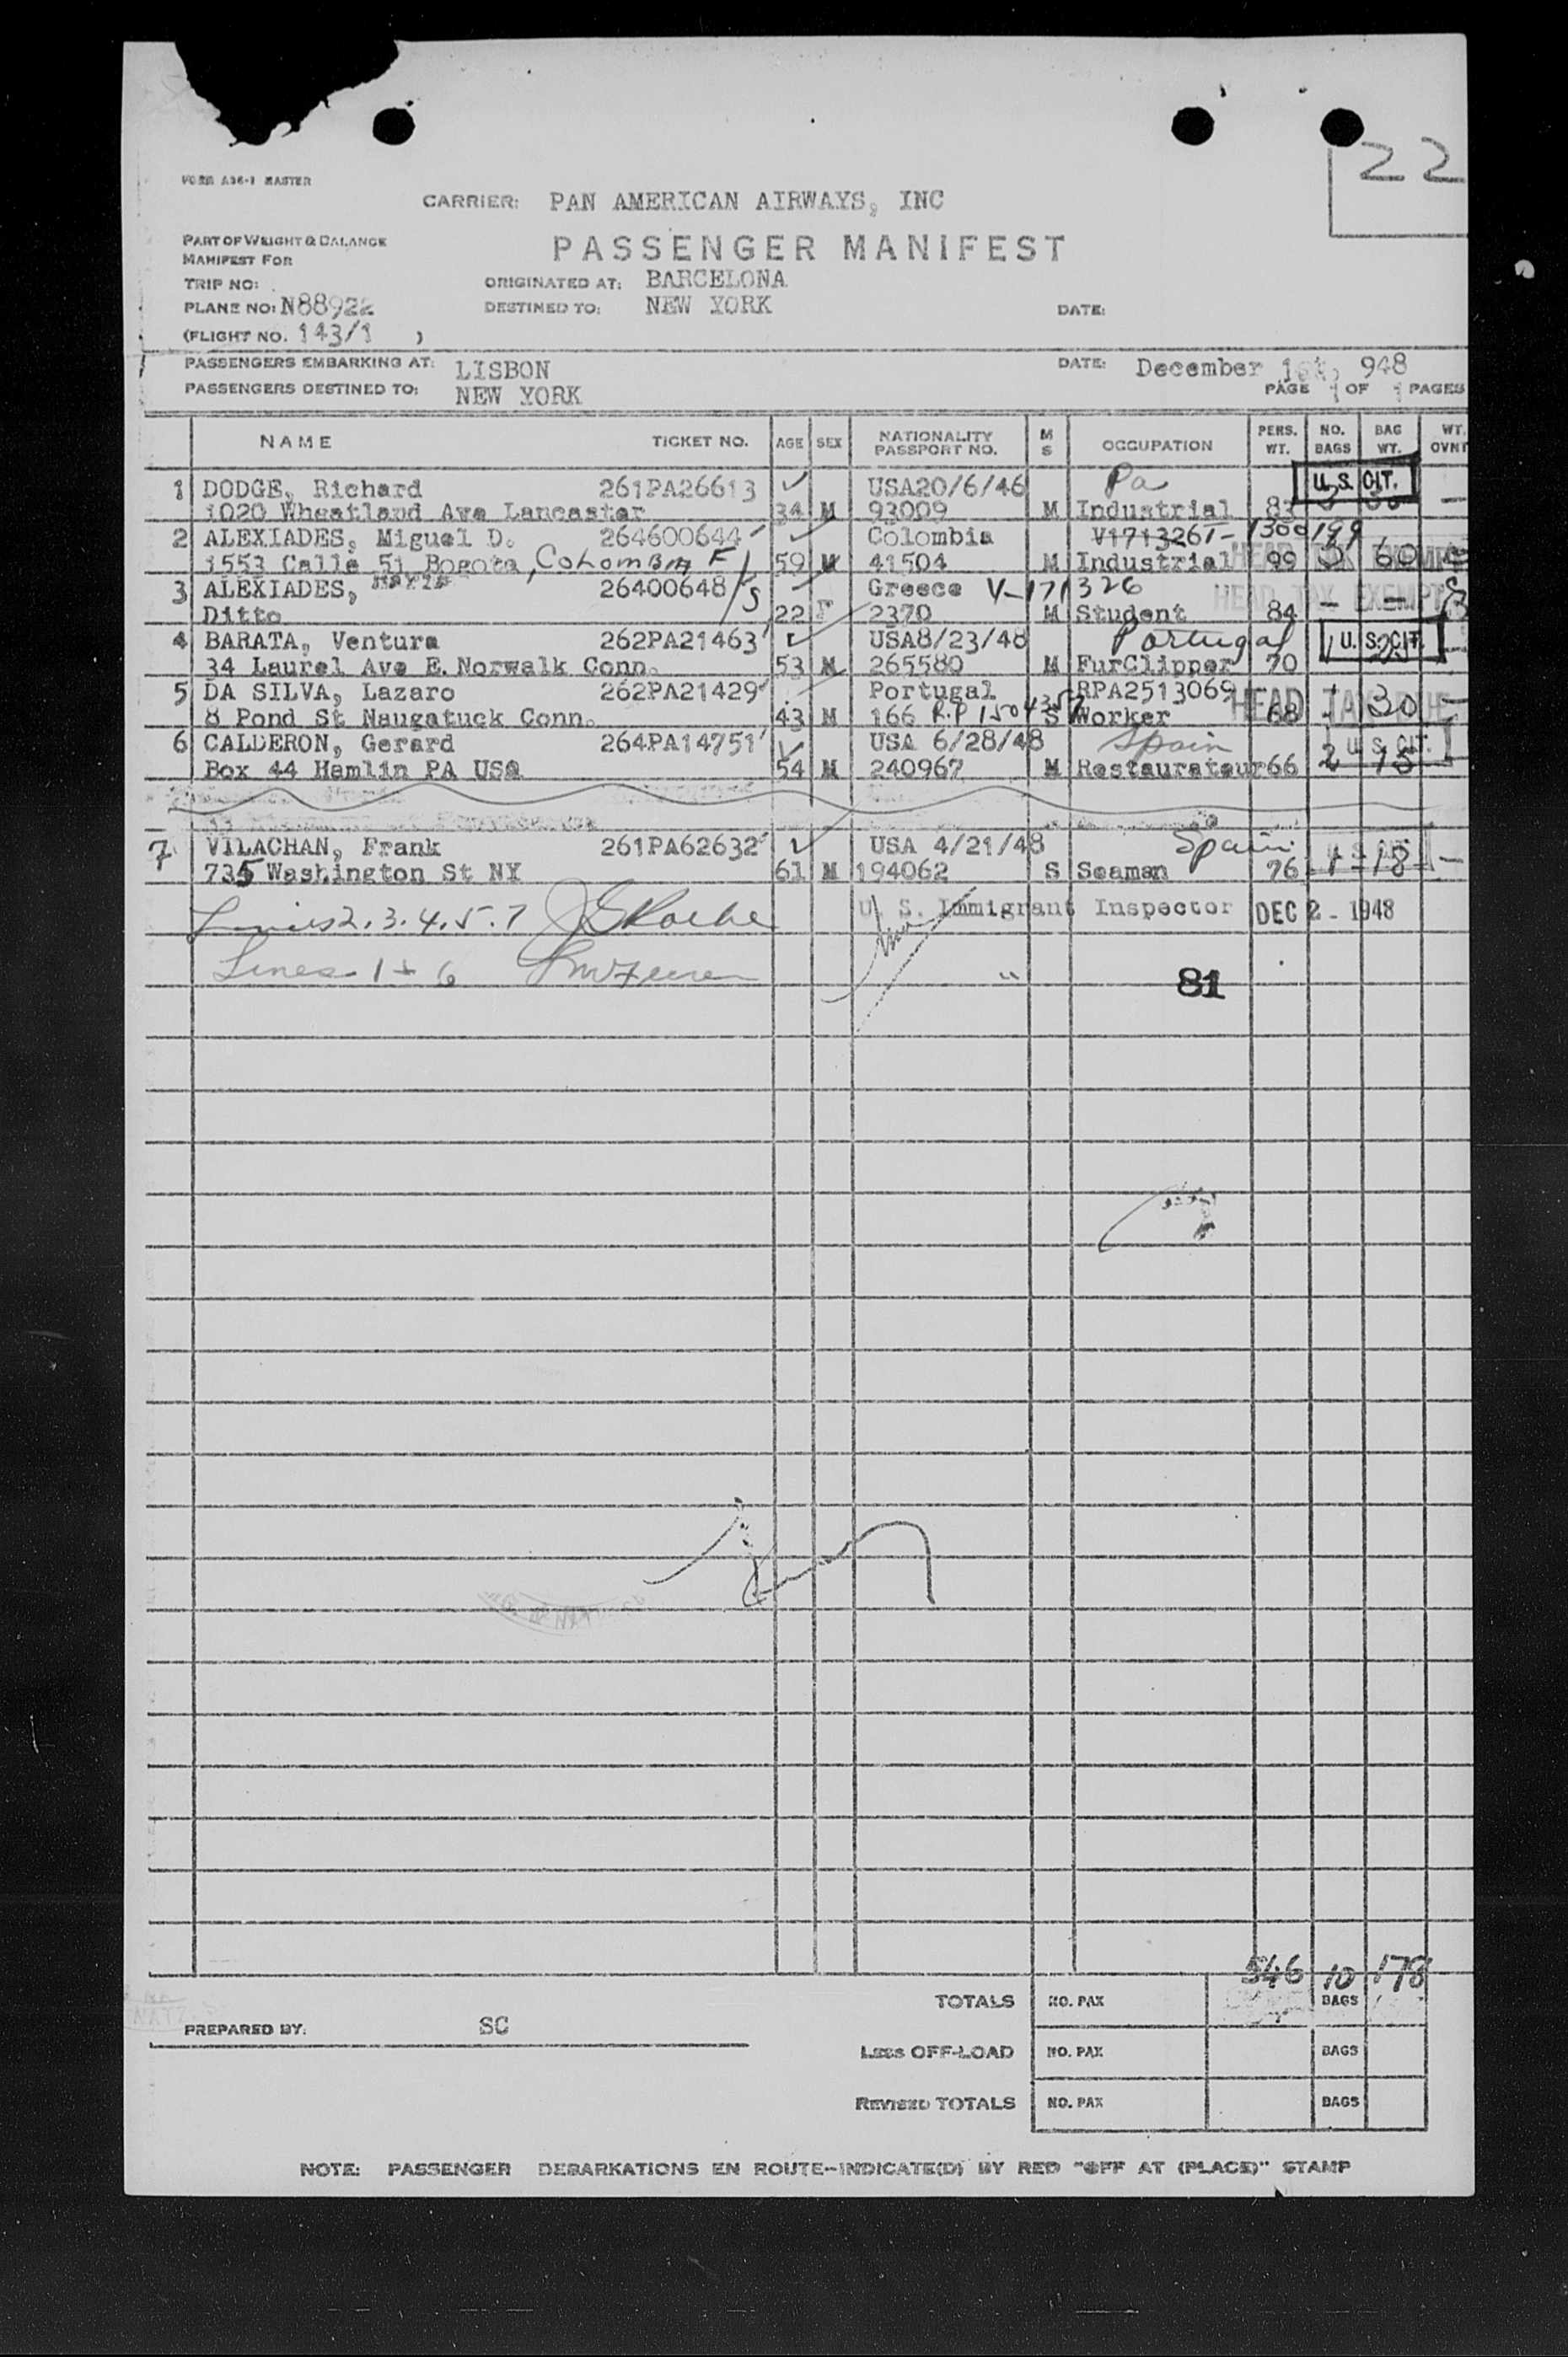 22
FORM A36-1 MASTER
CARRIER: PAN AMERICAN AIRWAYS, INC
PART OF WEIGHT & BALANCE
MANIFEST FOR
PASSENGER MANIFEST
TRIP NO:
ORIGINATED AT: BARCELONA
PLANE NO: N88922
DESTINED TO: NEW YORK
DATE:
(FLIGHT NO. 143/1 )
PASSENGERS EMBARKING AT: LISBON
DATE: December 1st, 948
PASSENGERS DESTINED TO: NEW YORK
PAGE 1 OF 1 PAGES
NAME TICKET NO. AGE SEX NATIONALITY PASSPORT NO. M S OCCUPATION PERS. WT. NO. BAGS BAG WT. WT. OVNT
1 DODGE, Richard 261PA26613 USA20/6/46 Pa U.S. CIT.
1020 Wheatland Ave Lancaster 34 M 93009 M Industrial 83
2 ALEXIADES, Miguel D. 264600644 Colombia V171326T
1553 Calle 51 Bogota, Colombia 59 M 41504 M Industrial 99 60
3 ALEXIADES, Maria 26400648 Greece V-171326 HEAD TAX EXEMPT
Ditto 22 F 2370 M Student 84 - -
4 BARATA, Ventura 262PA21463 USA8/23/48 Portugal U.S. CIT.
34 Laurel Ave E. Norwalk Conn. 53 M 265580 M FurClipper 70
5 DA SILVA, Lazaro 262PA21429 Portugal RPA2513069 HEAD TAX
8 Pond St Naugatuck Conn. 43 M 166 S Worker 68 1 30 -
6 CALDERON, Gerard 264PA14751 USA 6/28/48 Spain U.S. CIT.
Box 44 Hamlin PA USA 54 M 240967 M Restaurateur 66 2 15
7 VILACHAN, Frank 261PA62632 USA 4/21/48 Spain
735 Washington St NY 61 M 194062 S Seaman 76 1 18 -
Lines 2.3.4.5.7 U. S. Immigrant Inspector DEC 2 - 1948
Lines 1 + 6 "
81
546 10 178
TOTALS NO. PAX BAGS
PREPARED BY: SC
Less OFF-LOAD NO. PAX BAGS
REVISED TOTALS NO. PAX BAGS
NOTE: PASSENGER DEBARKATIONS EN ROUTE--INDICATE(D) BY RED "OFF AT (PLACE)" STAMP